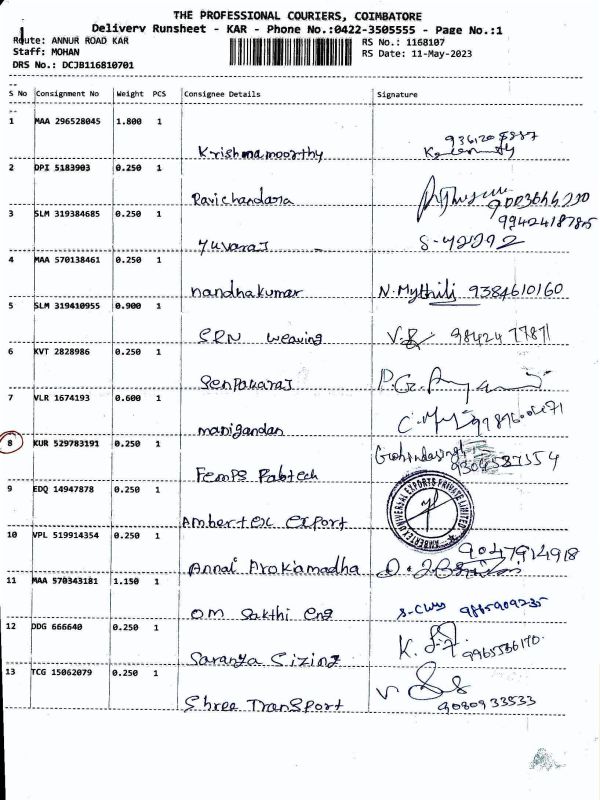 THE PROFESSIONAL COURIERS, COIMBATORE
Delivery Runsheet - KAR - Phone No.:0422-3505555 - Page No.:1
Route: ANNUR ROAD KAR
RS No.: 1168107
Staff: MOHAN
RS Date: 11-May-2023
DRS No.: DCJB116810701
S No Consignment No Weight PCS Consignee Details Signature
1 MAA 296528045 1.800 1
Krishnamoorthy
2 DPI 5183903 0.250 1
Ravichandara
9003644230
3 SLM 319384685 0.250 1
99424187805
Yuvaraj - S-42292
4 MAA 570138461 0.250 1
nandhakumar N.Mythili 9384610160
5 SLM 319410955 0.900 1
SRN weaving 9842477871
6 KVT 2828986 0.250 1
Senpakaraj
7 VLR 1674193 0.600 1
manigandan
8 KUR 529783191 0.250 1
Femps Fabtech
9 EDQ 14947878 0.250 1
AMBERTEX UNIVERSAL EXPORTS PRIVATE LIMITED
Ambertex export
10 VPL 519914354 0.250 1
9047914918
Annai Arokiamadha
11 MAA 570343181 1.150 1
OM Sakthi Eng 9865909235
12 DDG 666640 0.250 1
Saranya Sizing 9965566170
13 TCG 15062079 0.250 1
Shree Transport 9080933533